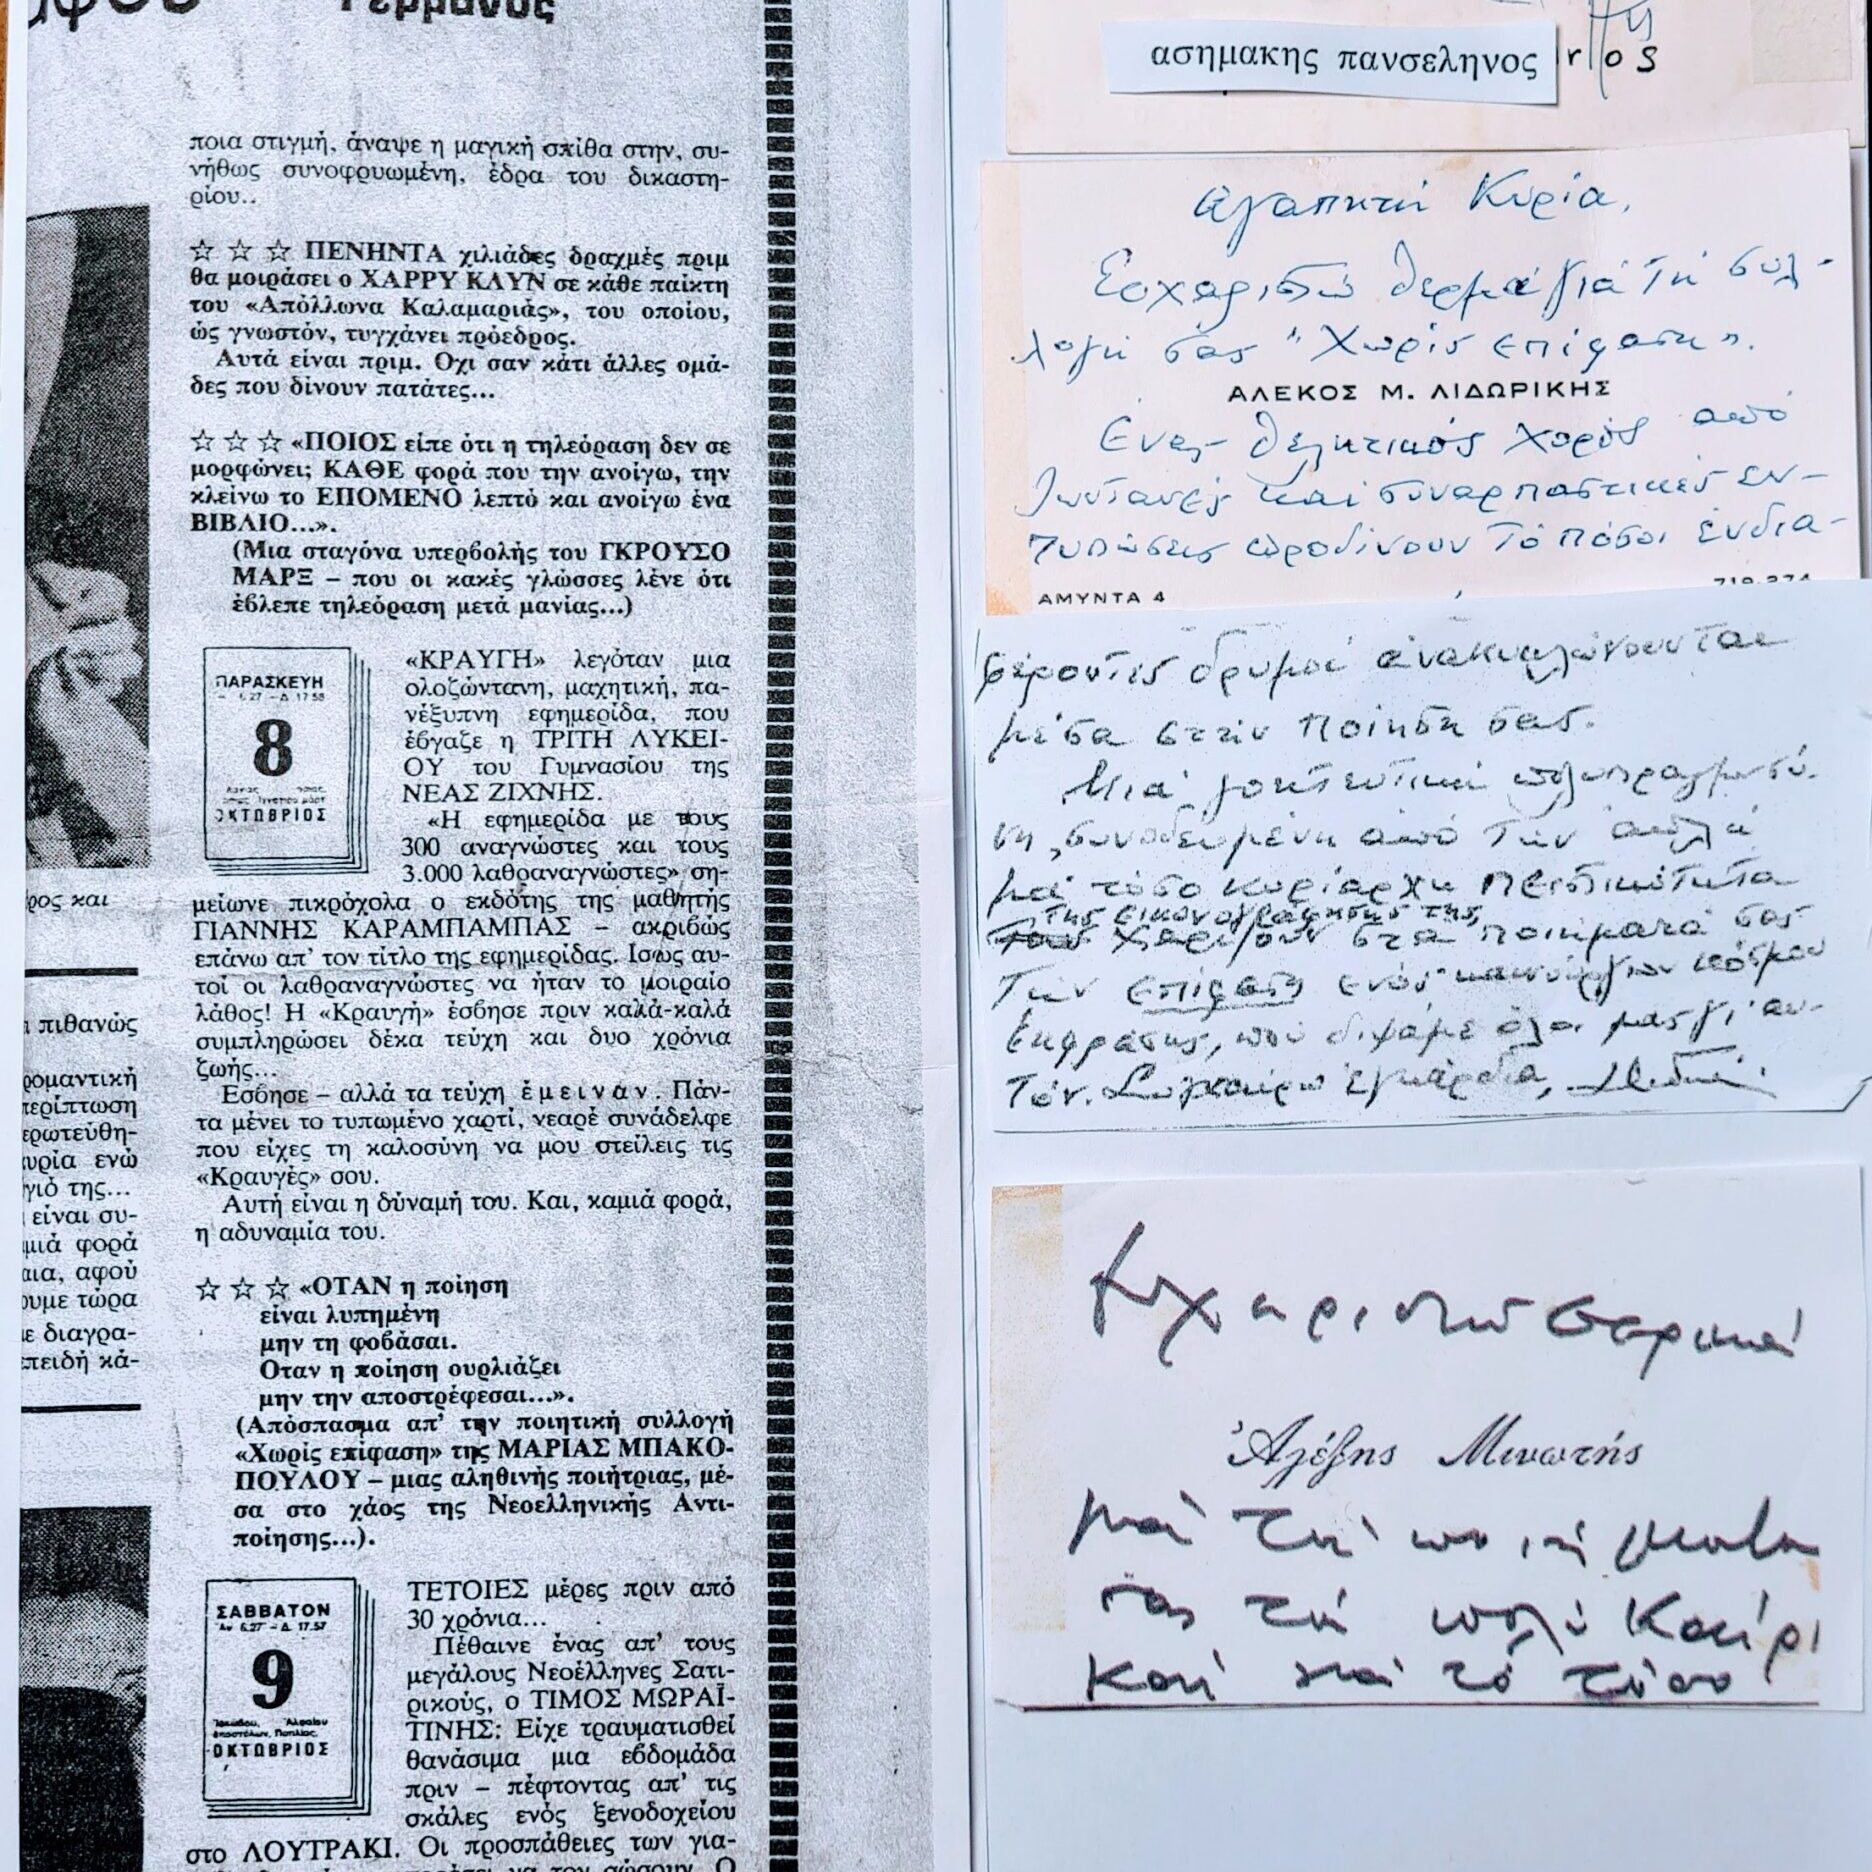 Γερμανός
ποια στιγμή, άναψε η μαγική σπίθα στην, συ-
νήθως συνοφρυωμένη, έδρα του δικαστη-
ρίου..
☆ ☆ ☆ ΠΕΝΗΝΤΑ χιλιάδες δραχμές πριμ
θα μοιράσει ο ΧΑΡΡΥ ΚΛΥΝ σε κάθε παίκτη
του «Απόλλωνα Καλαμαριάς», του οποίου,
ώς γνωστόν, τυγχάνει πρόεδρος.
Αυτά είναι πριμ. Οχι σαν κάτι άλλες ομά-
δες που δίνουν πατάτες...
☆ ☆ ☆ «ΠΟΙΟΣ είπε ότι η τηλεόραση δεν σε
μορφώνει; ΚΑΘΕ φορά που την ανοίγω, την
κλείνω το ΕΠΟΜΕΝΟ λεπτό και ανοίγω ένα
ΒΙΒΛΙΟ...».
(Μια σταγόνα υπερβολής του ΓΚΡΟΥΣΟ
ΜΑΡΞ – που οι κακές γλώσσες λένε ότι
έβλεπε τηλεόραση μετά μανίας...)
ΠΑΡΑΣΚΕΥΗ
8
ΟΚΤΩΒΡΙΟΣ
«ΚΡΑΥΓΗ» λεγόταν μια
ολοζώντανη, μαχητική, πα-
νέξυπνη εφημερίδα, που
έβγαζε η ΤΡΙΤΗ ΛΥΚΕΙ-
ΟΥ του Γυμνασίου της
ΝΕΑΣ ΖΙΧΝΗΣ.
«Η εφημερίδα με τους
300 αναγνώστες και τους
3.000 λαθραναγνώστες» ση-
μείωνε πικρόχολα ο εκδότης της μαθητής
ΓΙΑΝΝΗΣ ΚΑΡΑΜΠΑΜΠΑΣ – ακριβώς
επάνω απ' τον τίτλο της εφημερίδας. Ισως αυ-
τοί οι λαθραναγνώστες να ήταν το μοιραίο
λάθος! Η «Κραυγή» έσβησε πριν καλά-καλά
συμπληρώσει δέκα τεύχη και δυο χρόνια
ζωής...
Εσβησε – αλλά τα τεύχη έμειναν. Πάν-
τα μένει το τυπωμένο χαρτί, νεαρέ συνάδελφε
που είχες τη καλοσύνη να μου στείλεις τις
«Κραυγές» σου.
Αυτή είναι η δύναμή του. Και, καμιά φορά,
η αδυναμία του.
☆ ☆ ☆ «ΟΤΑΝ η ποίηση
είναι λυπημένη
μην τη φοβάσαι.
Οταν η ποίηση ουρλιάζει
μην την αποστρέφεσαι...».
(Απόσπασμα απ' την ποιητική συλλογή
«Χωρίς επίφαση» της ΜΑΡΙΑΣ ΜΠΑΚΟ-
ΠΟΥΛΟΥ – μιας αληθινής ποιήτριας, μέ-
σα στο χάος της Νεοελληνικής Αντι-
ποίησης...).
ΣΑΒΒΑΤΟΝ
9
ΟΚΤΩΒΡΙΟΣ
ΤΕΤΟΙΕΣ μέρες πριν από
30 χρόνια...
Πέθαινε ένας απ' τους
μεγάλους Νεοέλληνες Σατι-
ρικούς, ο ΤΙΜΟΣ ΜΩΡΑΪ-
ΤΙΝΗΣ: Είχε τραυματισθεί
θανάσιμα μια εβδομάδα
πριν – πέφτοντας απ' τις
σκάλες ενός ξενοδοχείου
στο ΛΟΥΤΡΑΚΙ. Οι προσπάθειες των για-
ρος και
πιθανώς
ρομαντική
περίπτωση
ερωτεύθη-
υρία ενώ
γιό της...
είναι συ-
μιά φορά
αια, αφού
ουμε τώρα
ε διαγρα-
πειδή κά-
ασημακης πανσεληνος
Αγαπητή Κυρία,
Ευχαριστώ θερμά γιά τή συλ-
λογή σας "Χωρίς επίφαση".
ΑΛΕΚΟΣ Μ. ΛΙΔΩΡΙΚΗΣ
Ένας θελητικός χορός από
ζωντανές καί συναρπαστικές εν-
τυπώσεις προδίνουν τό πόσοι ένδια-
ΑΜΥΝΤΑ 4
719.274
φέροντες δρυμοί ανακυκλώνονται
μέσα στήν ποίηση σας.
Μιά γοητευτική πολυπραγμοσύ-
νη, συνοδευμένη από τήν απλή
μά τόσο κυρίαρχη πειστικότητα
της εικονογράφησης της,
χαρίζουν στα ποιήματά σας
Τήν επίφαση ενός καινούργιου κόσμου
έκφρασης, πού διψάμε όλοι μας γι' αυ-
τόν. Συγχαίρω εγκάρδια,
Ευχαριστώ θερμά
Ἀλέξης Μινωτής
γιά τά ποιήματα
σας τά πολύ καίρι
καί γιά τό τόσο